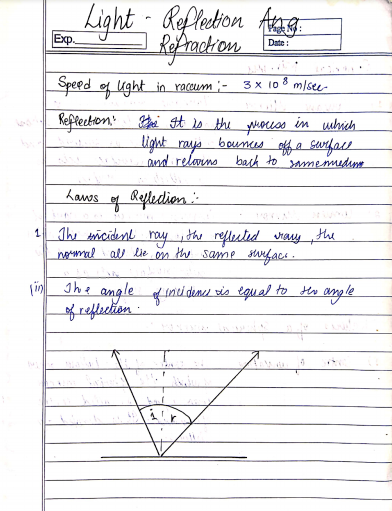 Light - Reflection Ang
Refraction
Exp.
Page No :
Date :
Speed of light in vaccum :- 3 x 10⁸ m/sec
Reflection:- It is the process in which
light rays bounces off a surface
and returns back to same medium
Laws of Reflection :-
1 The incident ray, the reflected wray, the
normal all lie on the same surface.
(ii) The angle of incidence is equal to the angle
of reflection.
i r